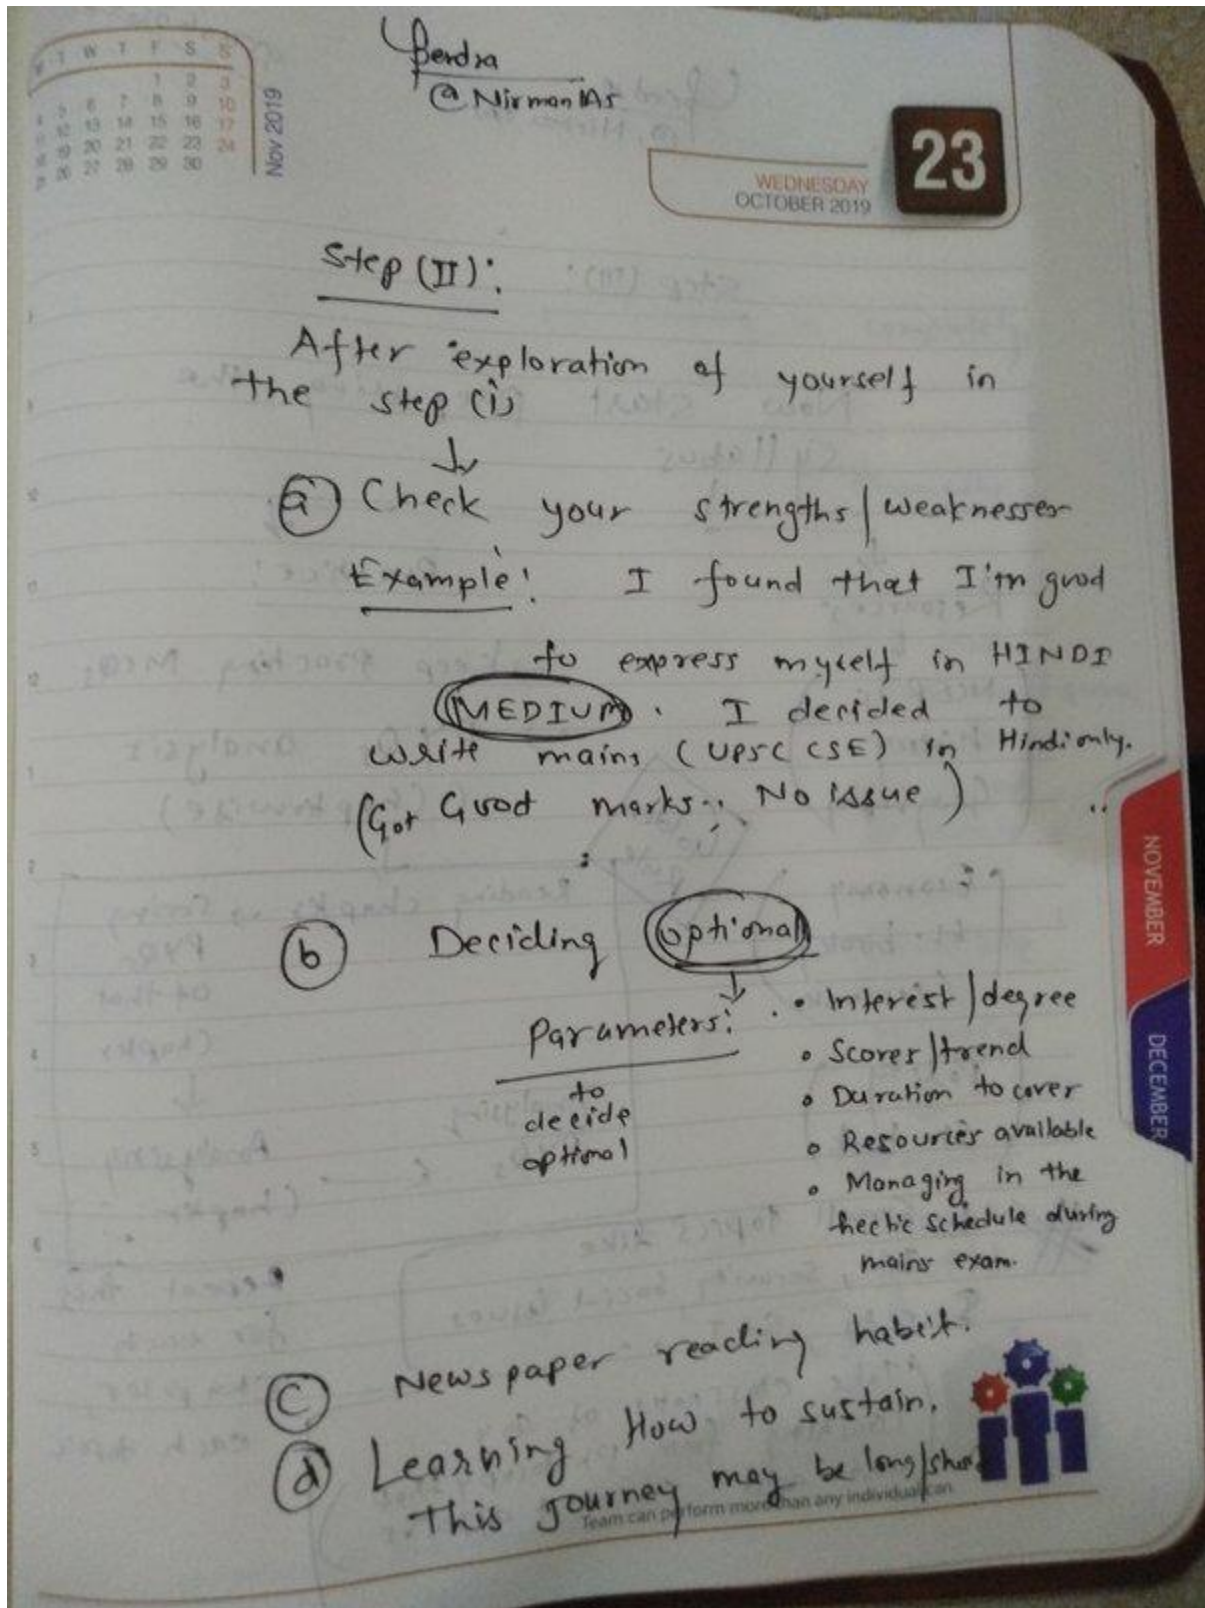 @ NirmanIAS
M T W T F S S
1 2 3
4 5 6 7 8 9 10
11 12 13 14 15 16 17
18 19 20 21 22 23 24
25 26 27 28 29 30
Nov 2019
23
WEDNESDAY
OCTOBER 2019
Step (II):
After exploration of yourself in
the step (i)
↓
(a) Check your strengths/weaknesses
Example: I found that I'm good
to express myself in HINDI
MEDIUM. I decided to
write mains (UPSC CSE) in Hindi only.
(Got Good marks.. No issue)
(b) Deciding optional
↓
Parameters:
to
decide
optional
• Interest/degree
• Scores/trend
• Duration to cover
• Resources available
• Managing in the
hectic schedule during
mains exam.
(C) Newspaper reading habit.
(d) Learning How to sustain.
This Journey may be long/short
Team can perform more than any individual can
NOVEMBER
DECEMBER